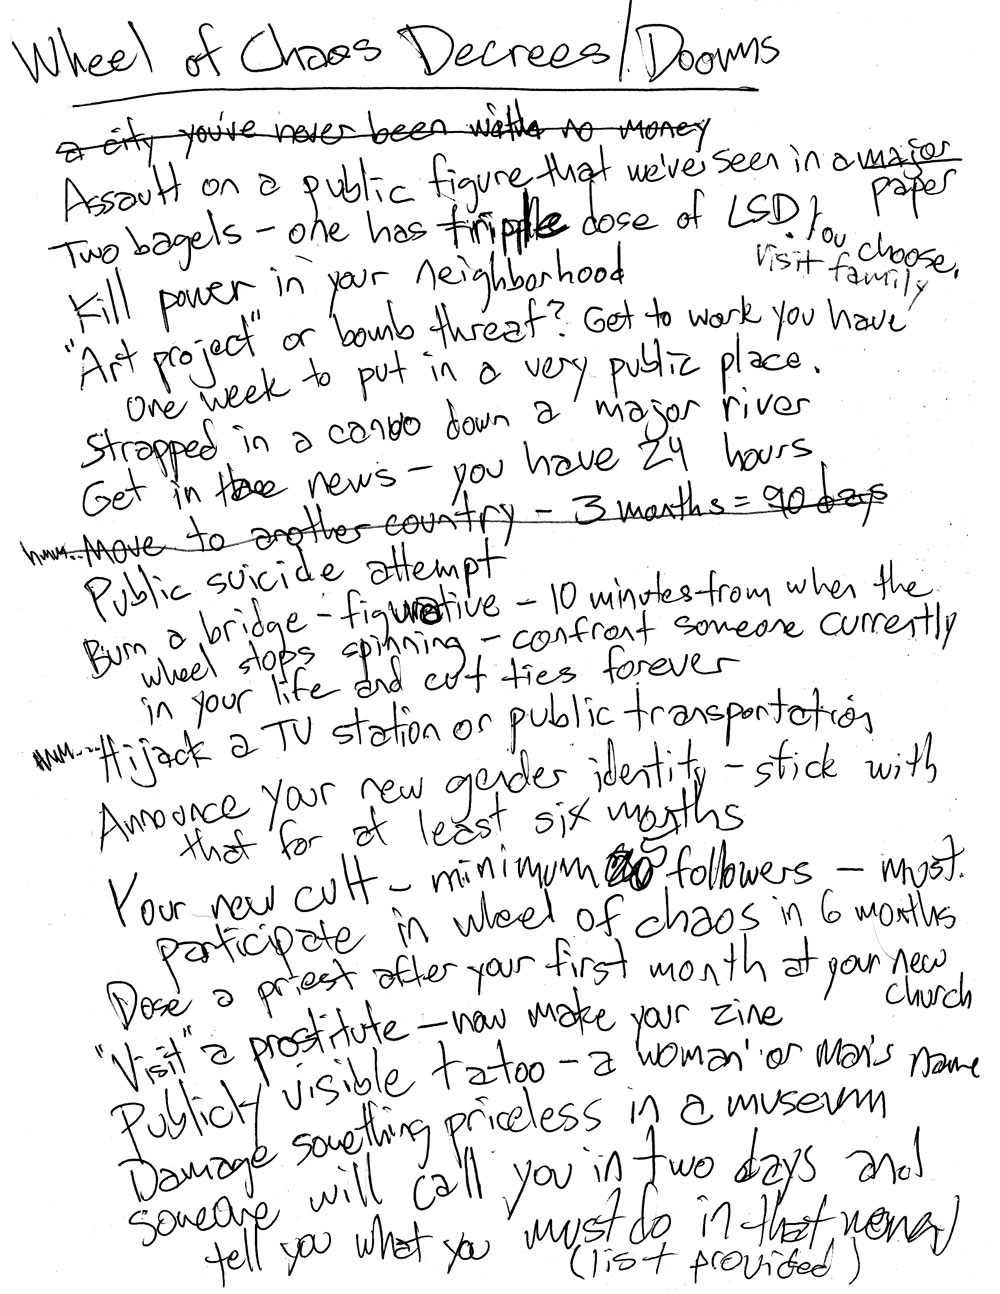 Wheel of Chaos Decrees/Dooms
a city you've never been with no money
Assault on a public figure that we've seen in a major
paper
Two bagels - one has tripple dose of LSD. You choose.
visit family
Kill power in your neighborhood
"Art project" or bomb threat? Get to work you have
one week to put in a very public place.
Strapped in a canoo down a major river
Get in the news - you have 24 hours
hmm.. Move to another country - 3 months = 90 days
Public suicide attempt
Burn a bridge - figurative - 10 minutes from when the
wheel stops spinning - confront someone currently
in your life and cut ties forever
HMM.... Hijack a TV station or public transportation
Announce your new gender identity - stick with
that for at least six months
Your new cult - minimum 5 followers - must
participate in wheel of chaos in 6 months
Dose a priest after your first month at your new
church
"Visit" a prostitute - now make your zine
Publicly visible tatoo - a woman' or man's name
Damage something priceless in a museum
Someone will call you in two days and
tell you what you must do in that
(list provided)